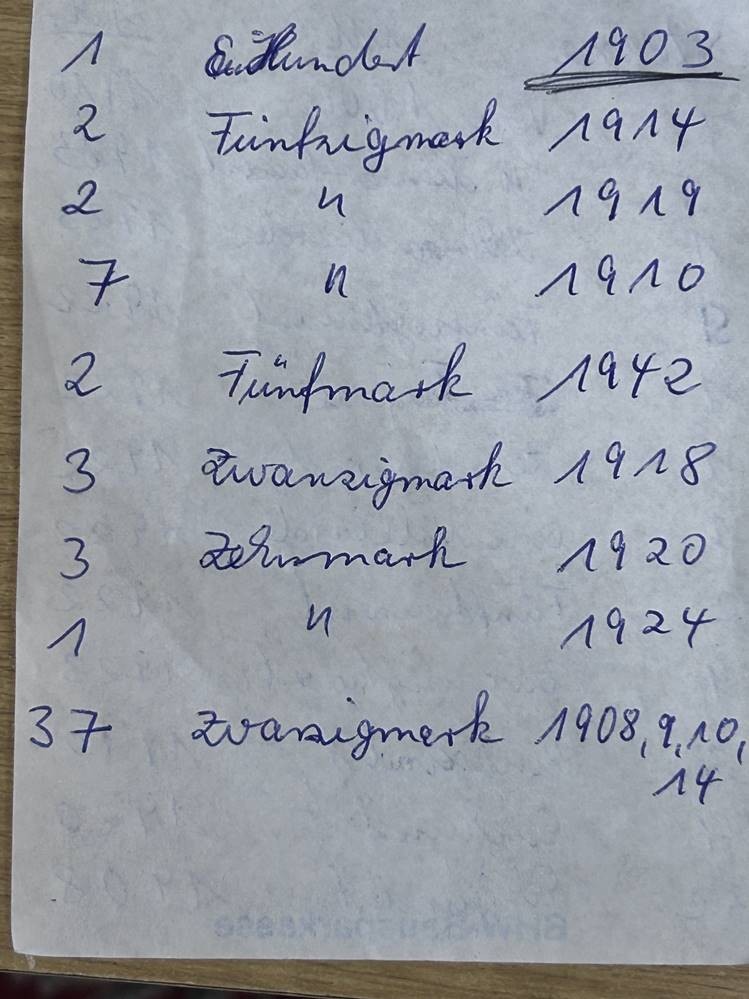 1 EinHundert 1903
2 Fünfzigmark 1914
2 " 1919
7 " 1910
2 Fünfmark 1942
3 Zwanzigmark 1918
3 Zehnmark 1920
1 " 1924
37 Zwanzigmark 1908, 9, 10,
14
BHW Bausparkasse